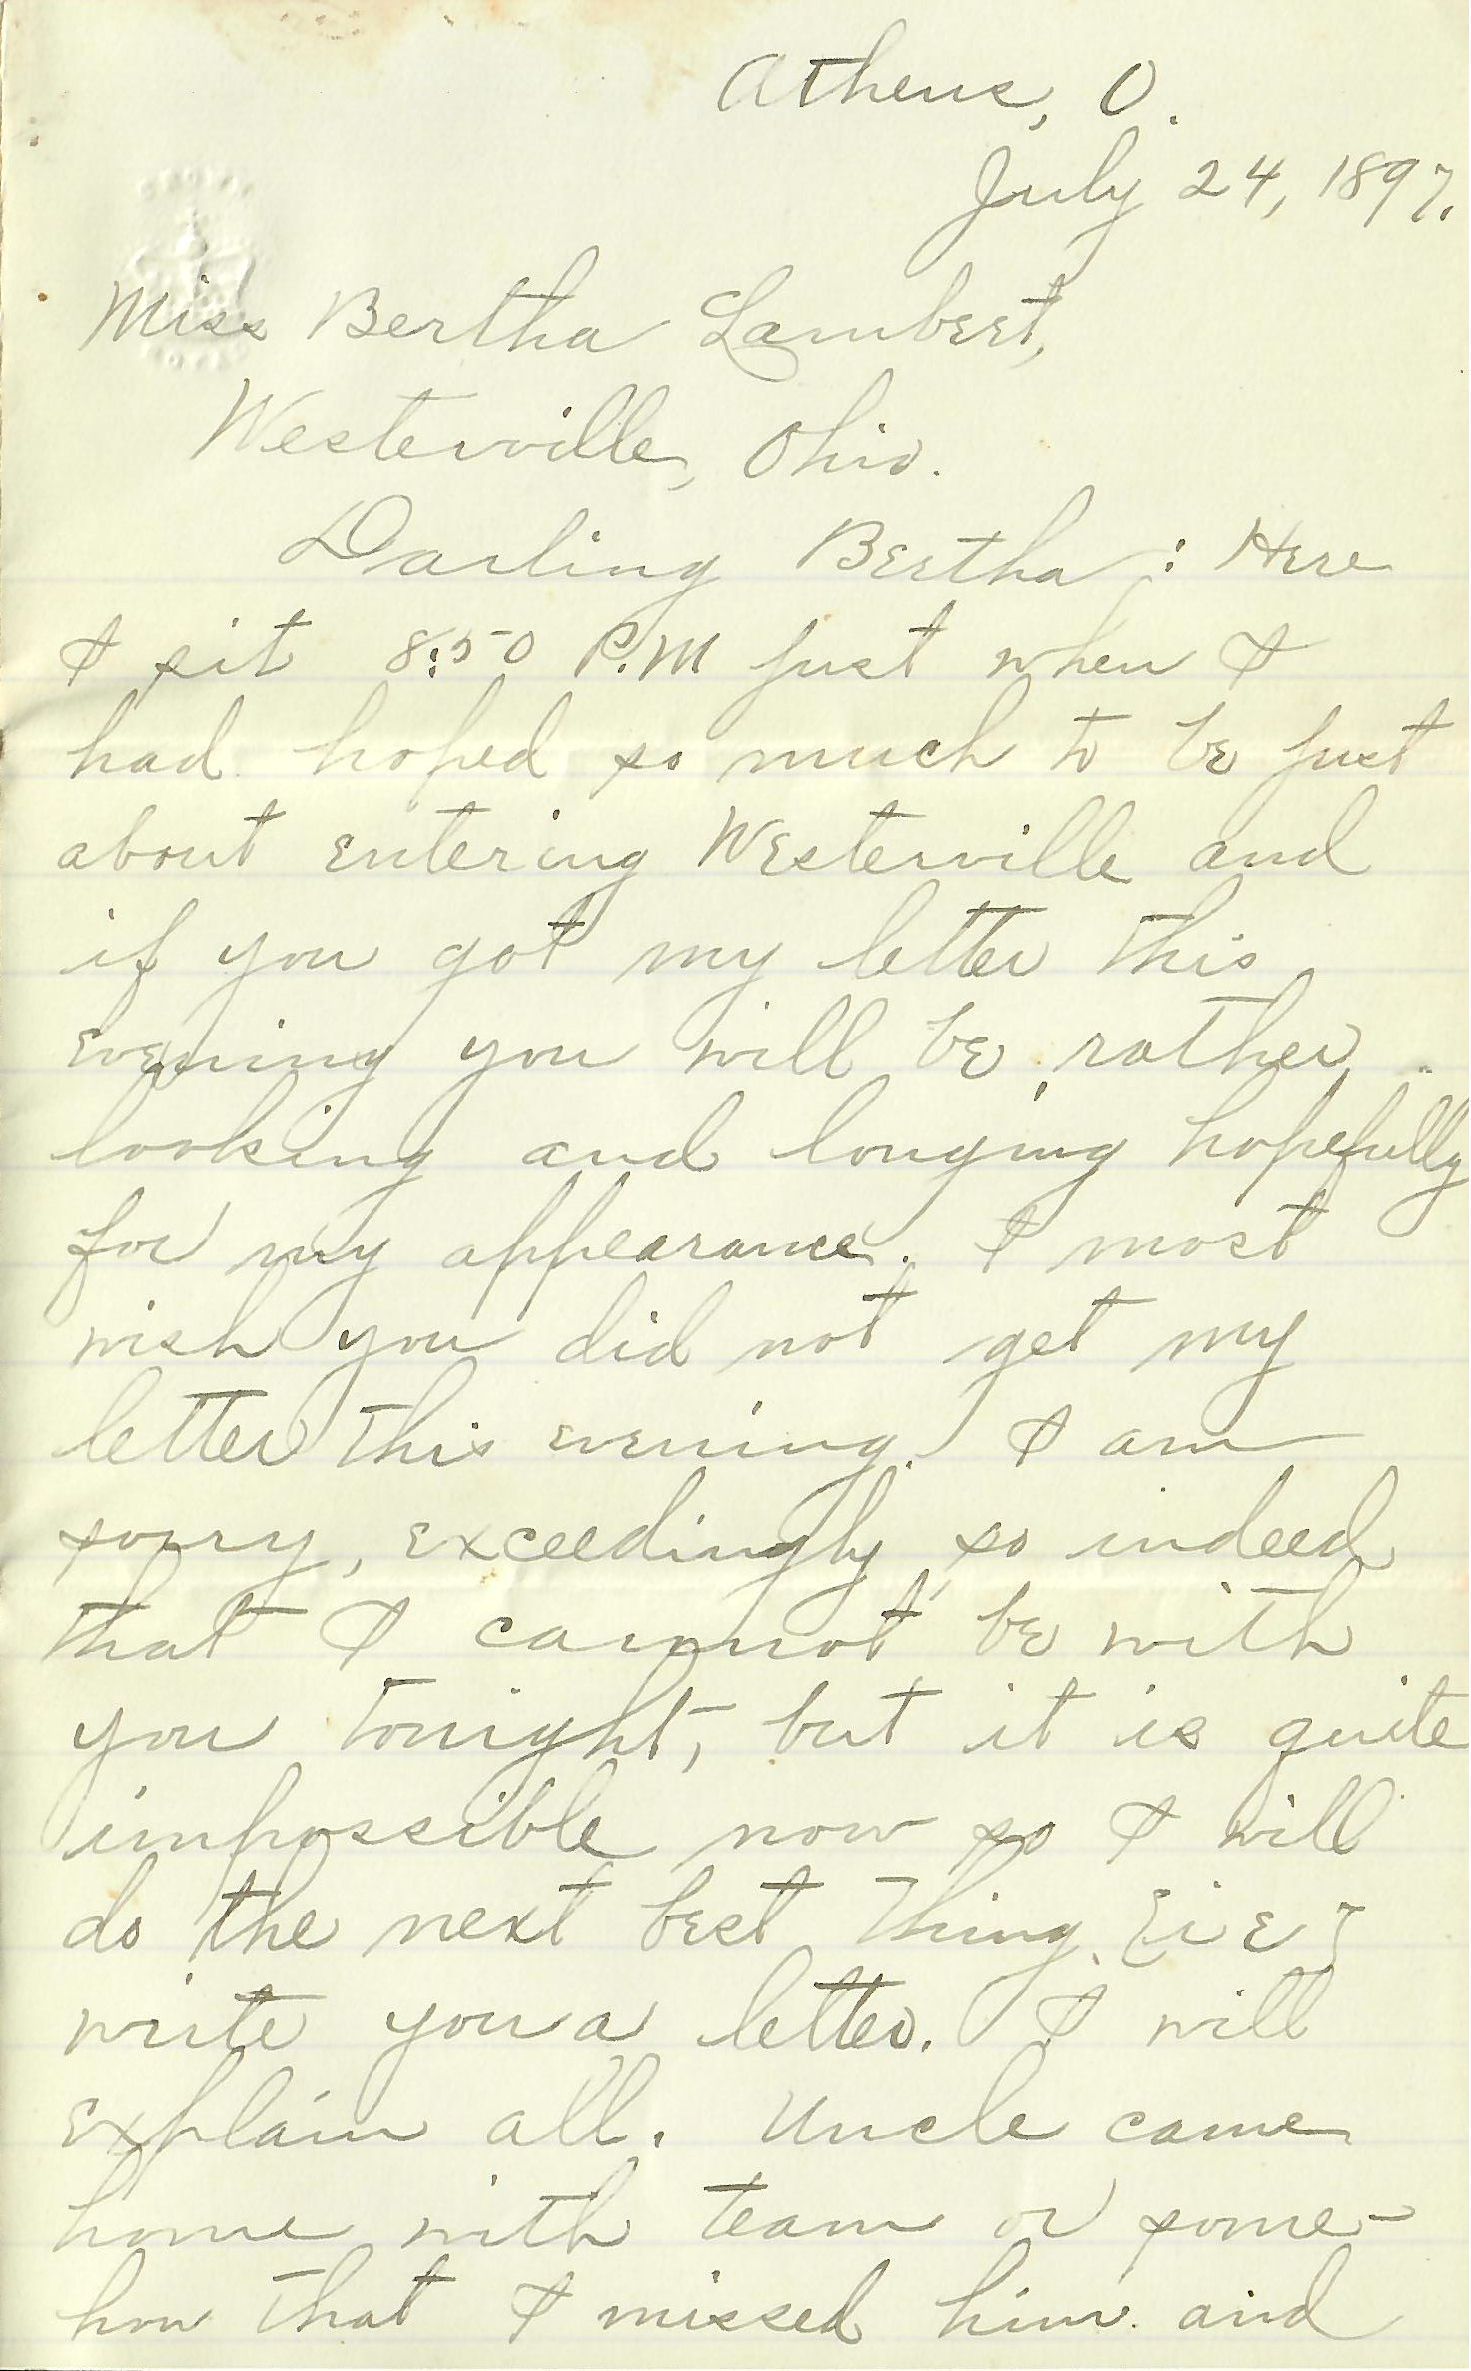 Athens, O.
July 24, 1897.
Miss Bertha Lambert,
Westerville, Ohio.
Darling Bertha: Here
I sit 8:50 P.M just when I
had hoped so much to be just
about entering Westerville and
if you got my letter this
evening you will be, rather
looking and longing hopefully
for my appearance. I most
wish you did not get my
letter this evening. I am
sorry, exceedingly so indeed
that I cannot be with
you tonight, but it is quite
impossible now so I will
do the next best thing. {i e}
write you a letter. I will
explain all. Uncle came
home with team or some-
how that I missed him and